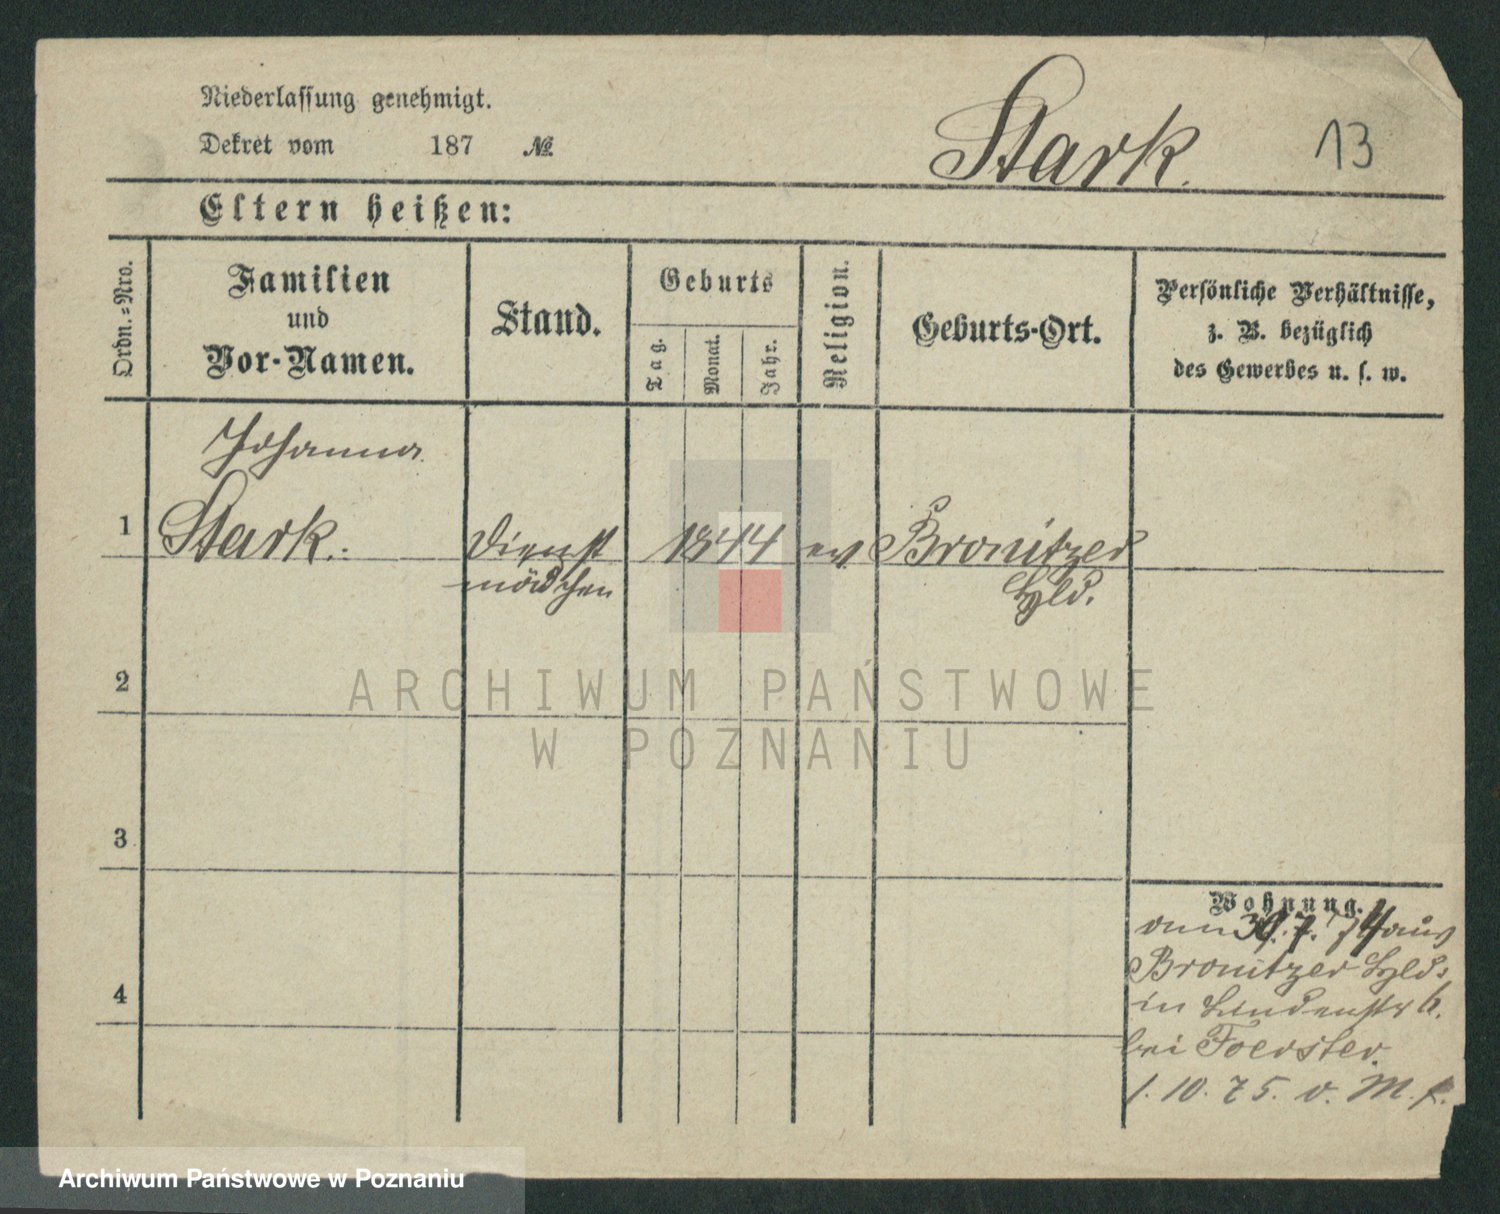 Niederlassung genehmigt.
Dekret vom 187 №
Stark.
13
Eltern heißen:
Ordn.=Nro.
Familien
und
Vor-Namen.
Stand.
Geburts
Tag.
Monat.
Jahr.
Religion.
Geburts-Ort.
Persönliche Verhältnisse,
z. B. bezüglich
des Gewerbes u. s. w.
Johanna
1 Stark. Dienst 1844 ev Bronitzer
mädchen Hld.
2
3
4
Wohnung.
am 30.7.74 aus
Bronitzer Hld.
in Lindenstr 6.
bei Foerster.
1.10.75. v.
ARCHIWUM PAŃSTWOWE
W POZNANIU
Archiwum Państwowe w Poznaniu